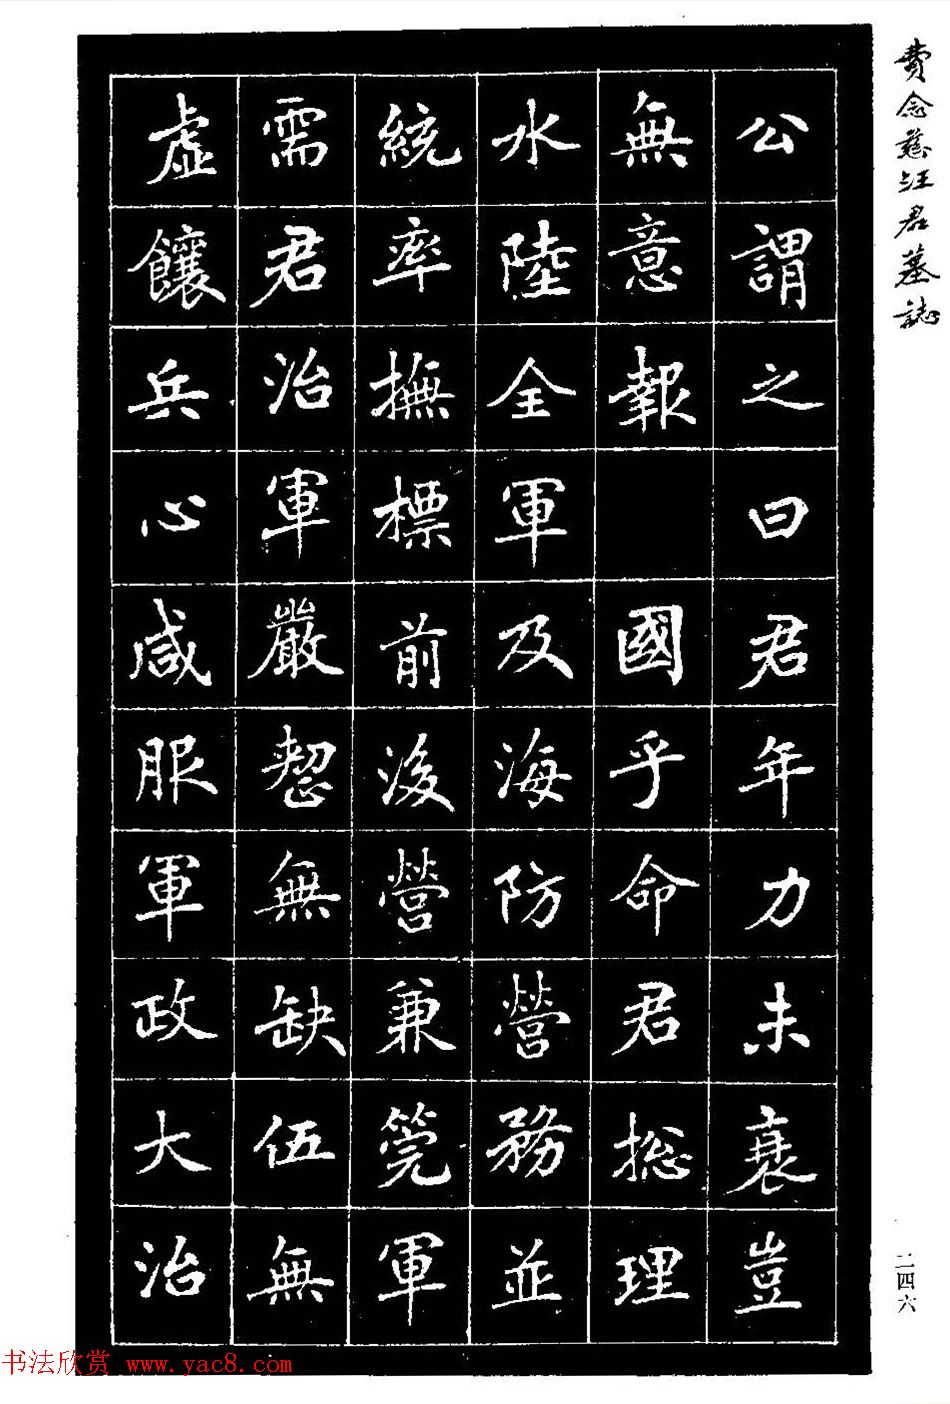 費念慈汪君墓誌
公謂之曰君年力未衰豈
無意報 國乎命君揔理
水陸全軍及海防營務並
統率撫標前後營兼筦軍
需君治軍嚴愬無缺伍無
虛饟兵心咸服軍政大治
二四六
书法欣赏 www.yac8.com